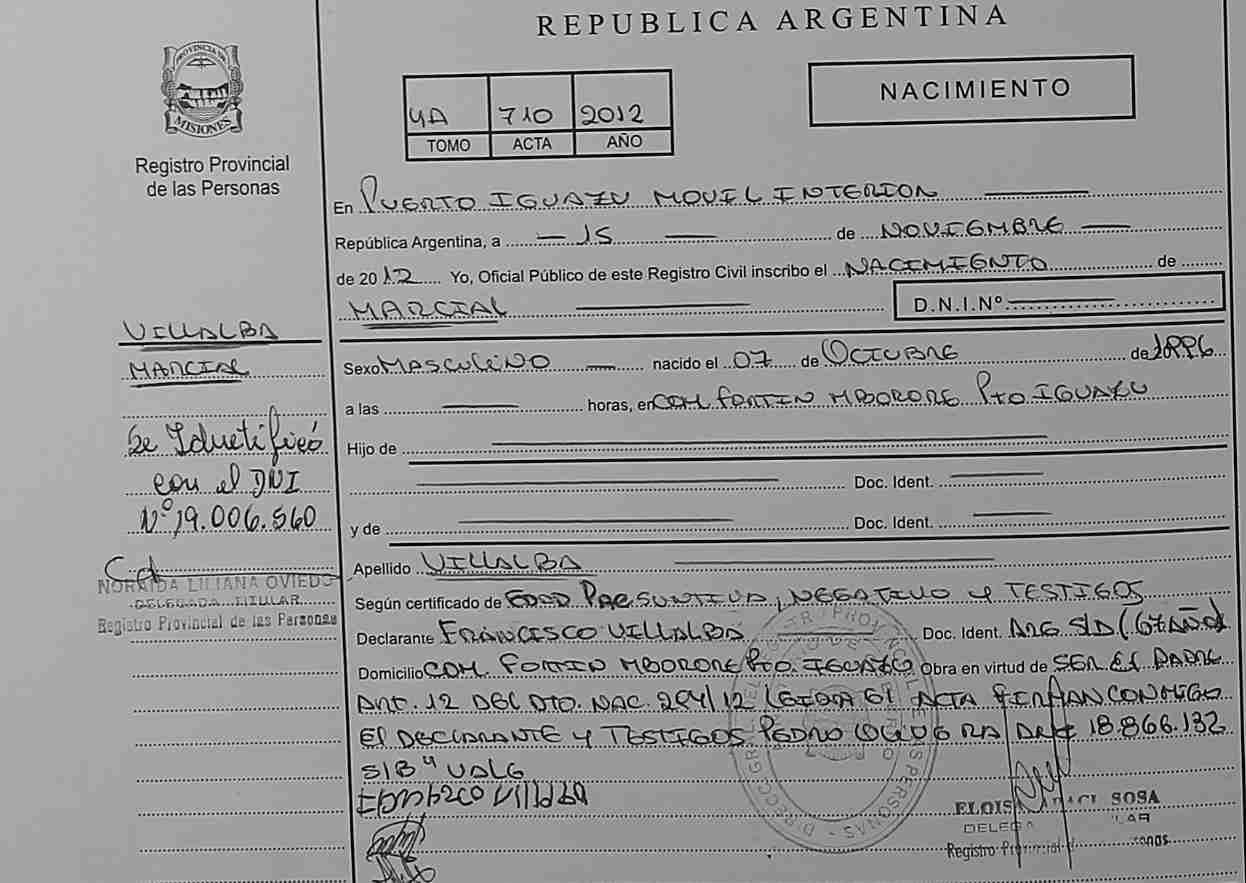 REPUBLICA ARGENTINA
PROVINCIA DE
MISIONES
Registro Provincial
de las Personas
4A 710 2012
TOMO ACTA AÑO
NACIMIENTO
En PUERTO IGUAZU MOVIL INTERIOR
República Argentina, a 15 de NOVIEMBRE
de 2012 Yo, Oficial Público de este Registro Civil inscribo el NACIMIENTO de
MARCIAL D.N.I.Nº
Sexo MASCULINO nacido el 07 de OCTUBRE de 1996
a las horas, en COM. FORTIN MBORORE Pto IGUAZU
Hijo de
Doc. Ident.
y de Doc. Ident.
Apellido VILLALBA
Según certificado de EDAD PRESUNTIVA, NEGATIVO Y TESTIGOS
Declarante FRANCISCO VILLALBA Doc. Ident. ARG S/D (67 AÑOS)
Domicilio COM. FORTIN MBORORE Pto. IGUAZU Obra en virtud de SER EL PADRE
ART. 12 DEL DTO. NAC. 294/12 LEIDA EL ACTA FIRMAN CONMIGO
EL DECLARANTE Y TESTIGOS PEDRO 18.866.132
S/Bº VALE
VILLALBA
MARCIAL
Se Identificó
con el DNI
Nº 19.006.560
NORAIDA LILIANA OVIEDO
DELEGADA TITULAR
Registro Provincial de las Personas
SOSA
Registro